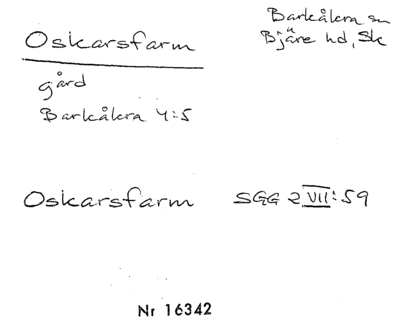 Oskarsfarm
Barkåkra sn
Bjäre hd, Sk
gård
Barkåkra 4:5
Oskarsfarm SGG 2 VII:59
Nr 16342